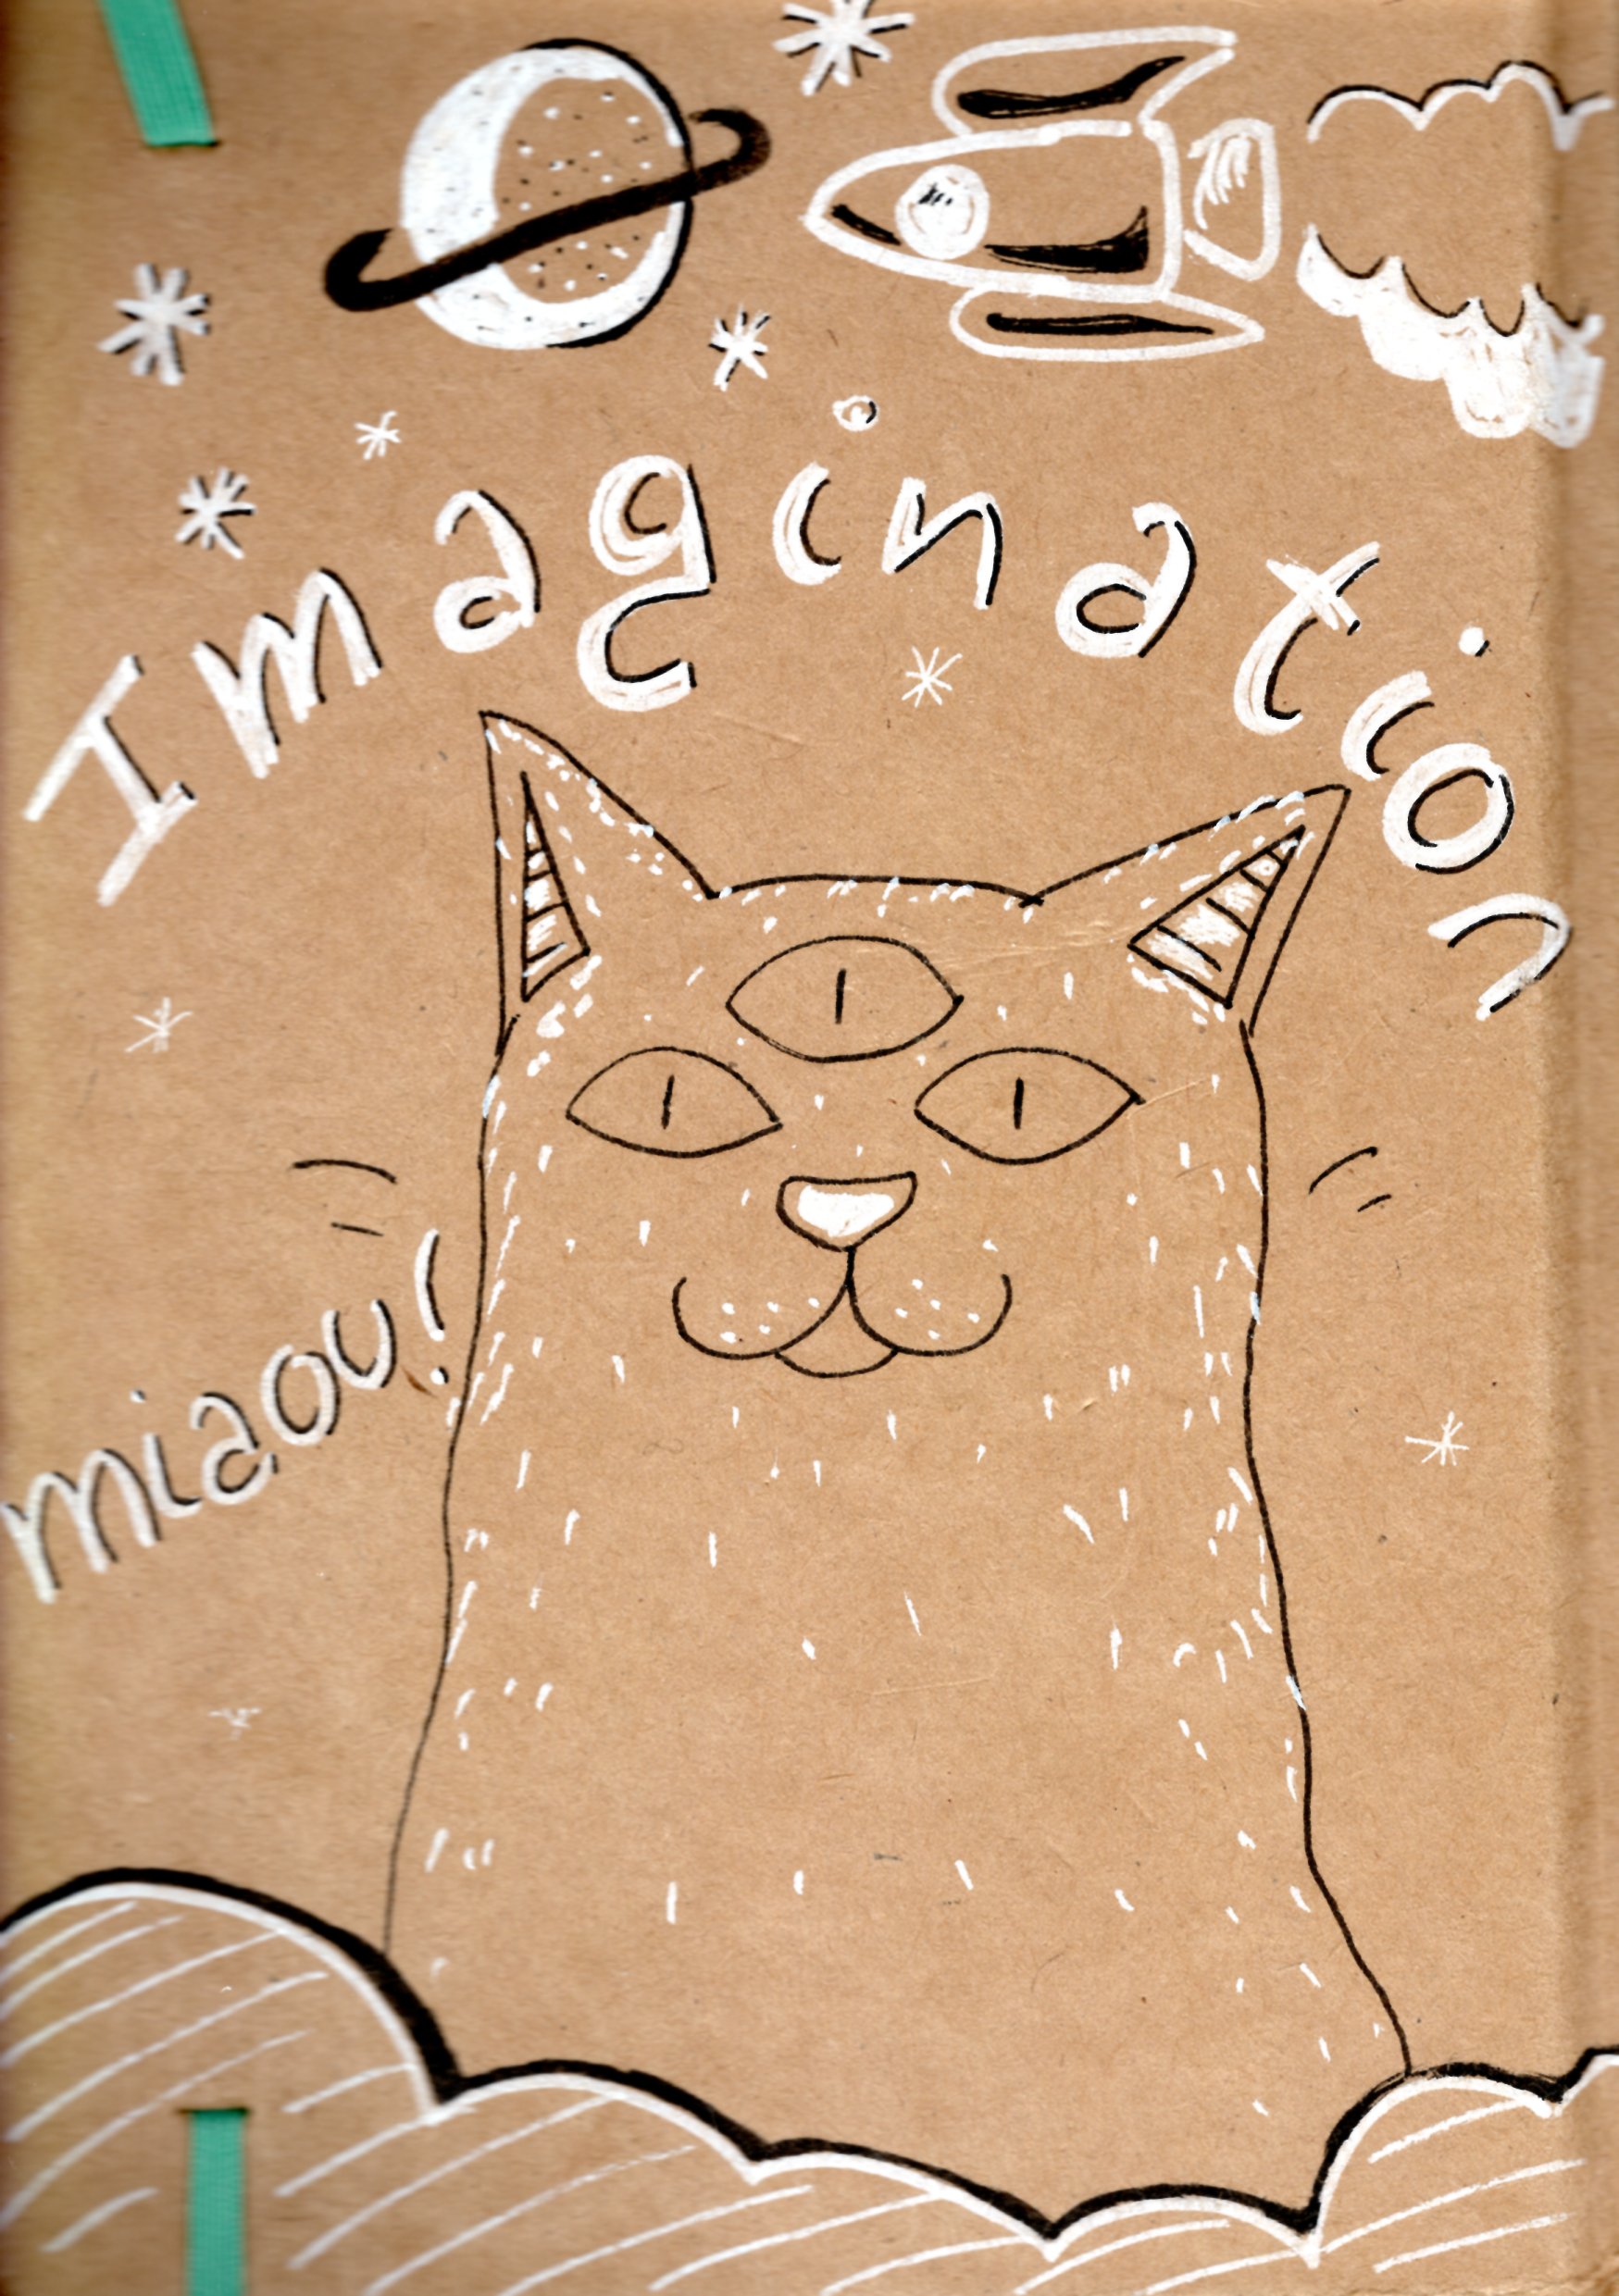 Imagination
miaou!